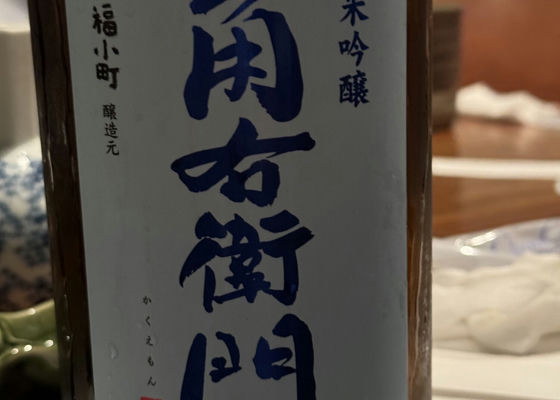 米吟醸
角右衛門
かくえもん
福小町
醸造元